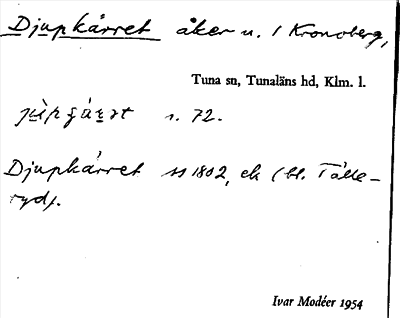 Djupkärret åker u. / Kronoberg,
Tuna sn, Tunaläns hd, Klm. l.
s. 72.
Djupkärret ss 1802, ek (bl. Tälle-
ryd).
Ivar Modéer 1954